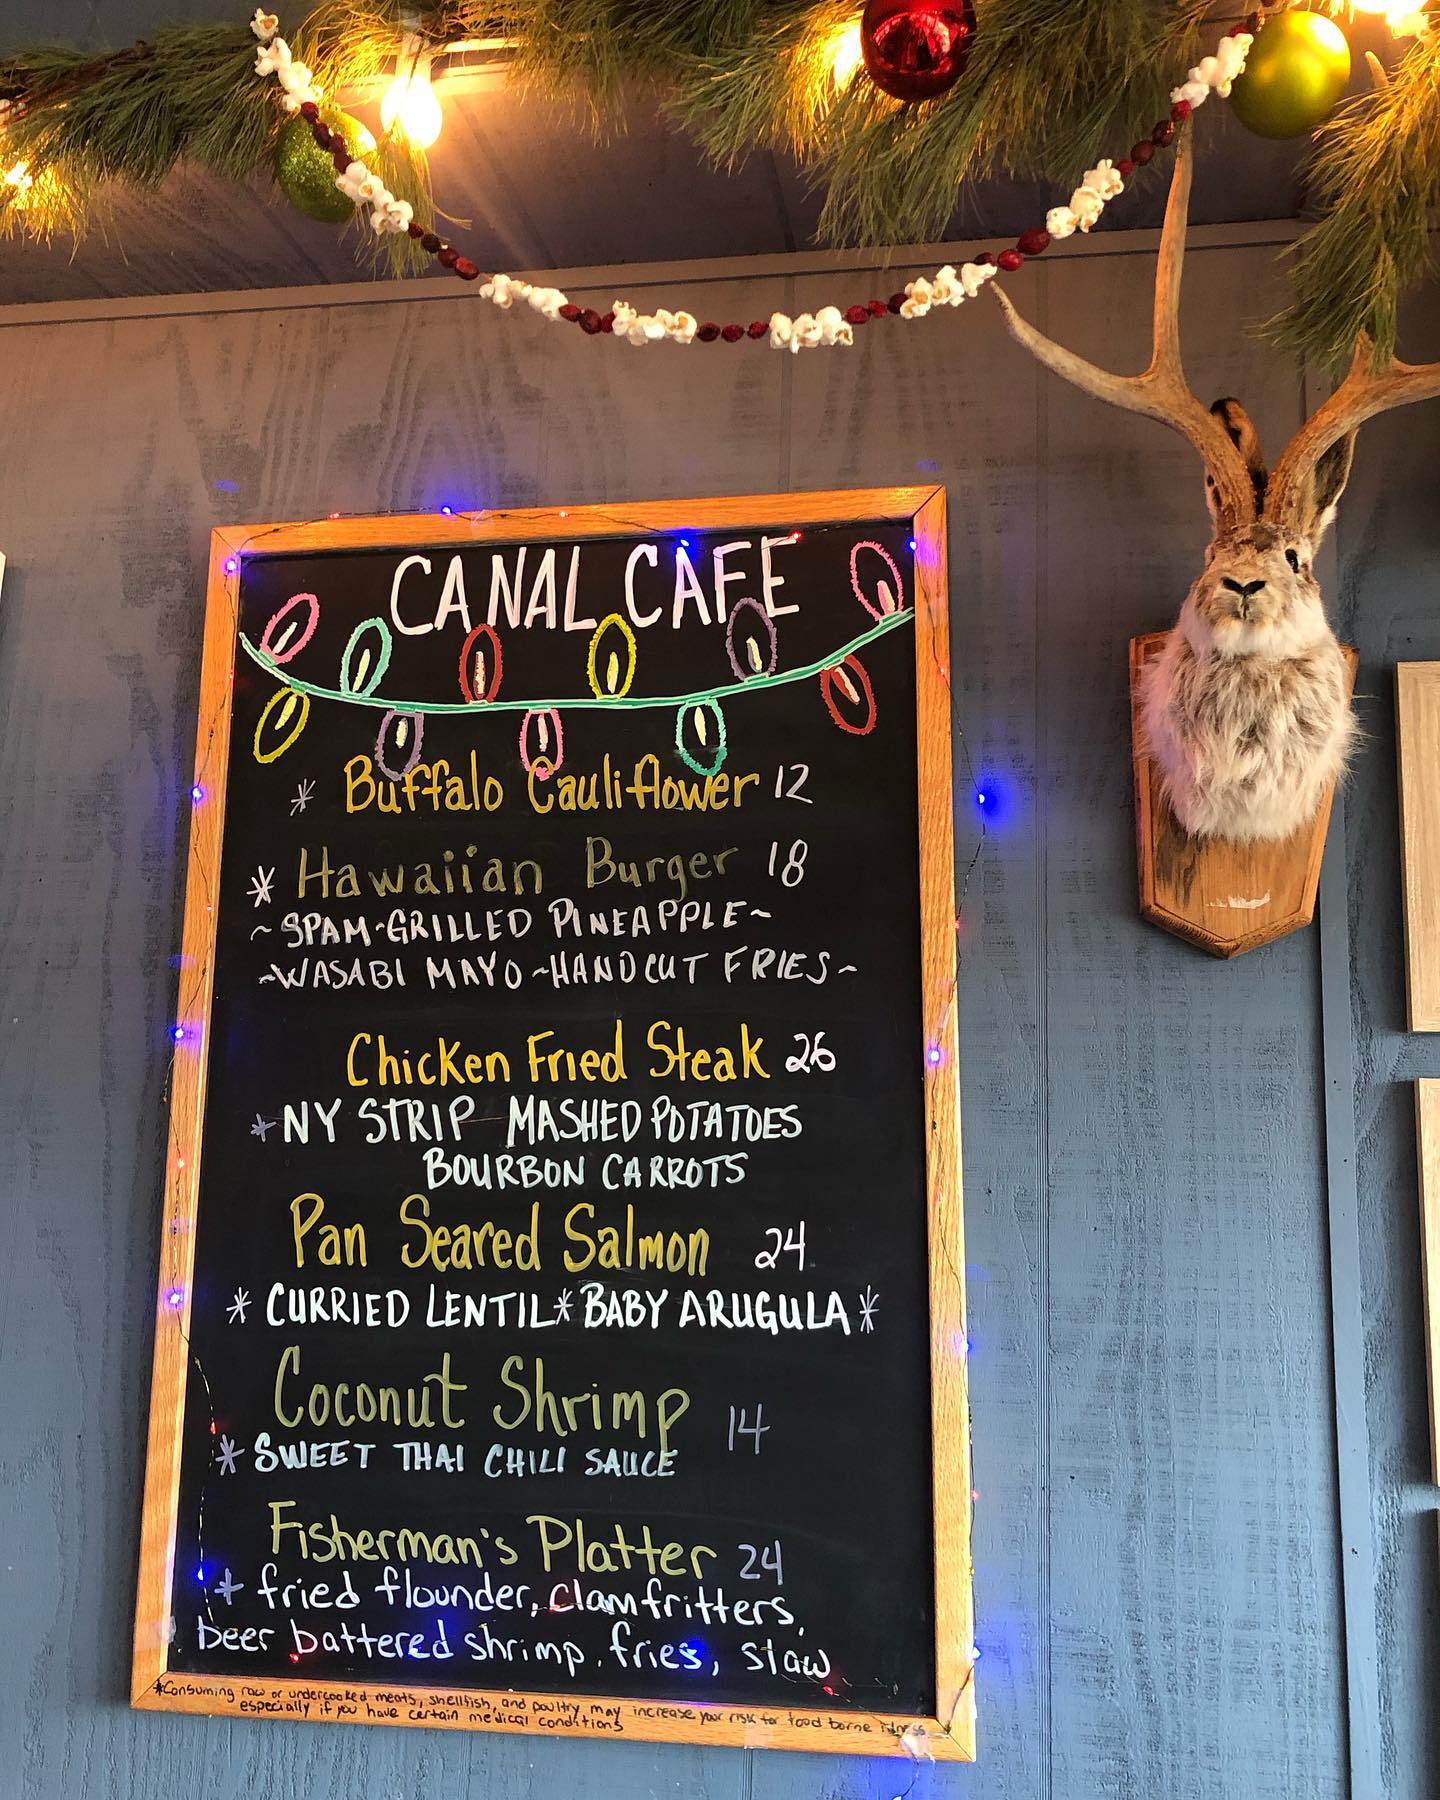 CANAL CAFE
* Buffalo Cauliflower 12
* Hawaiian Burger 18
~SPAM~GRILLED PINEAPPLE~
~WASABI MAYO~HANDCUT FRIES~
Chicken Fried Steak 26
*NY STRIP MASHED POTATOES
BOURBON CARROTS
Pan Seared Salmon 24
* CURRIED LENTIL * BABY ARUGULA *
Coconut Shrimp 14
* SWEET THAI CHILI SAUCE
Fisherman's Platter 24
* fried flounder, clam fritters,
beer battered shrimp, fries, slaw
*Consuming raw or undercooked meats, shellfish, and poultry, may increase your risk for food borne illness
especially if you have certain medical conditions